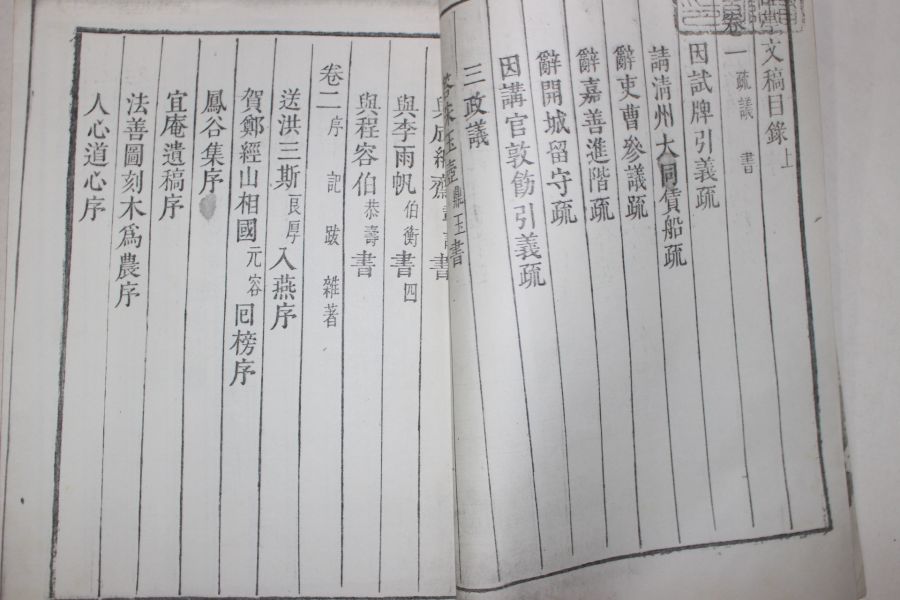 文稿目錄上
卷一 疏 議 書
因試牌引義疏
請清州大同賃船疏
辭吏曹參議疏
辭嘉善進階疏
辭開城留守疏
因講官敦飭引義疏
三政議
鼎玉書
與成 齋 書
與李雨帆伯衡書四
與程容伯恭壽書
卷二 序 記 跋 雜著
送洪三斯良厚入燕序
賀鄭經山相國元容回榜序
鳳谷集序
宜庵遺稿序
法善圖刻木爲農序
人心道心序